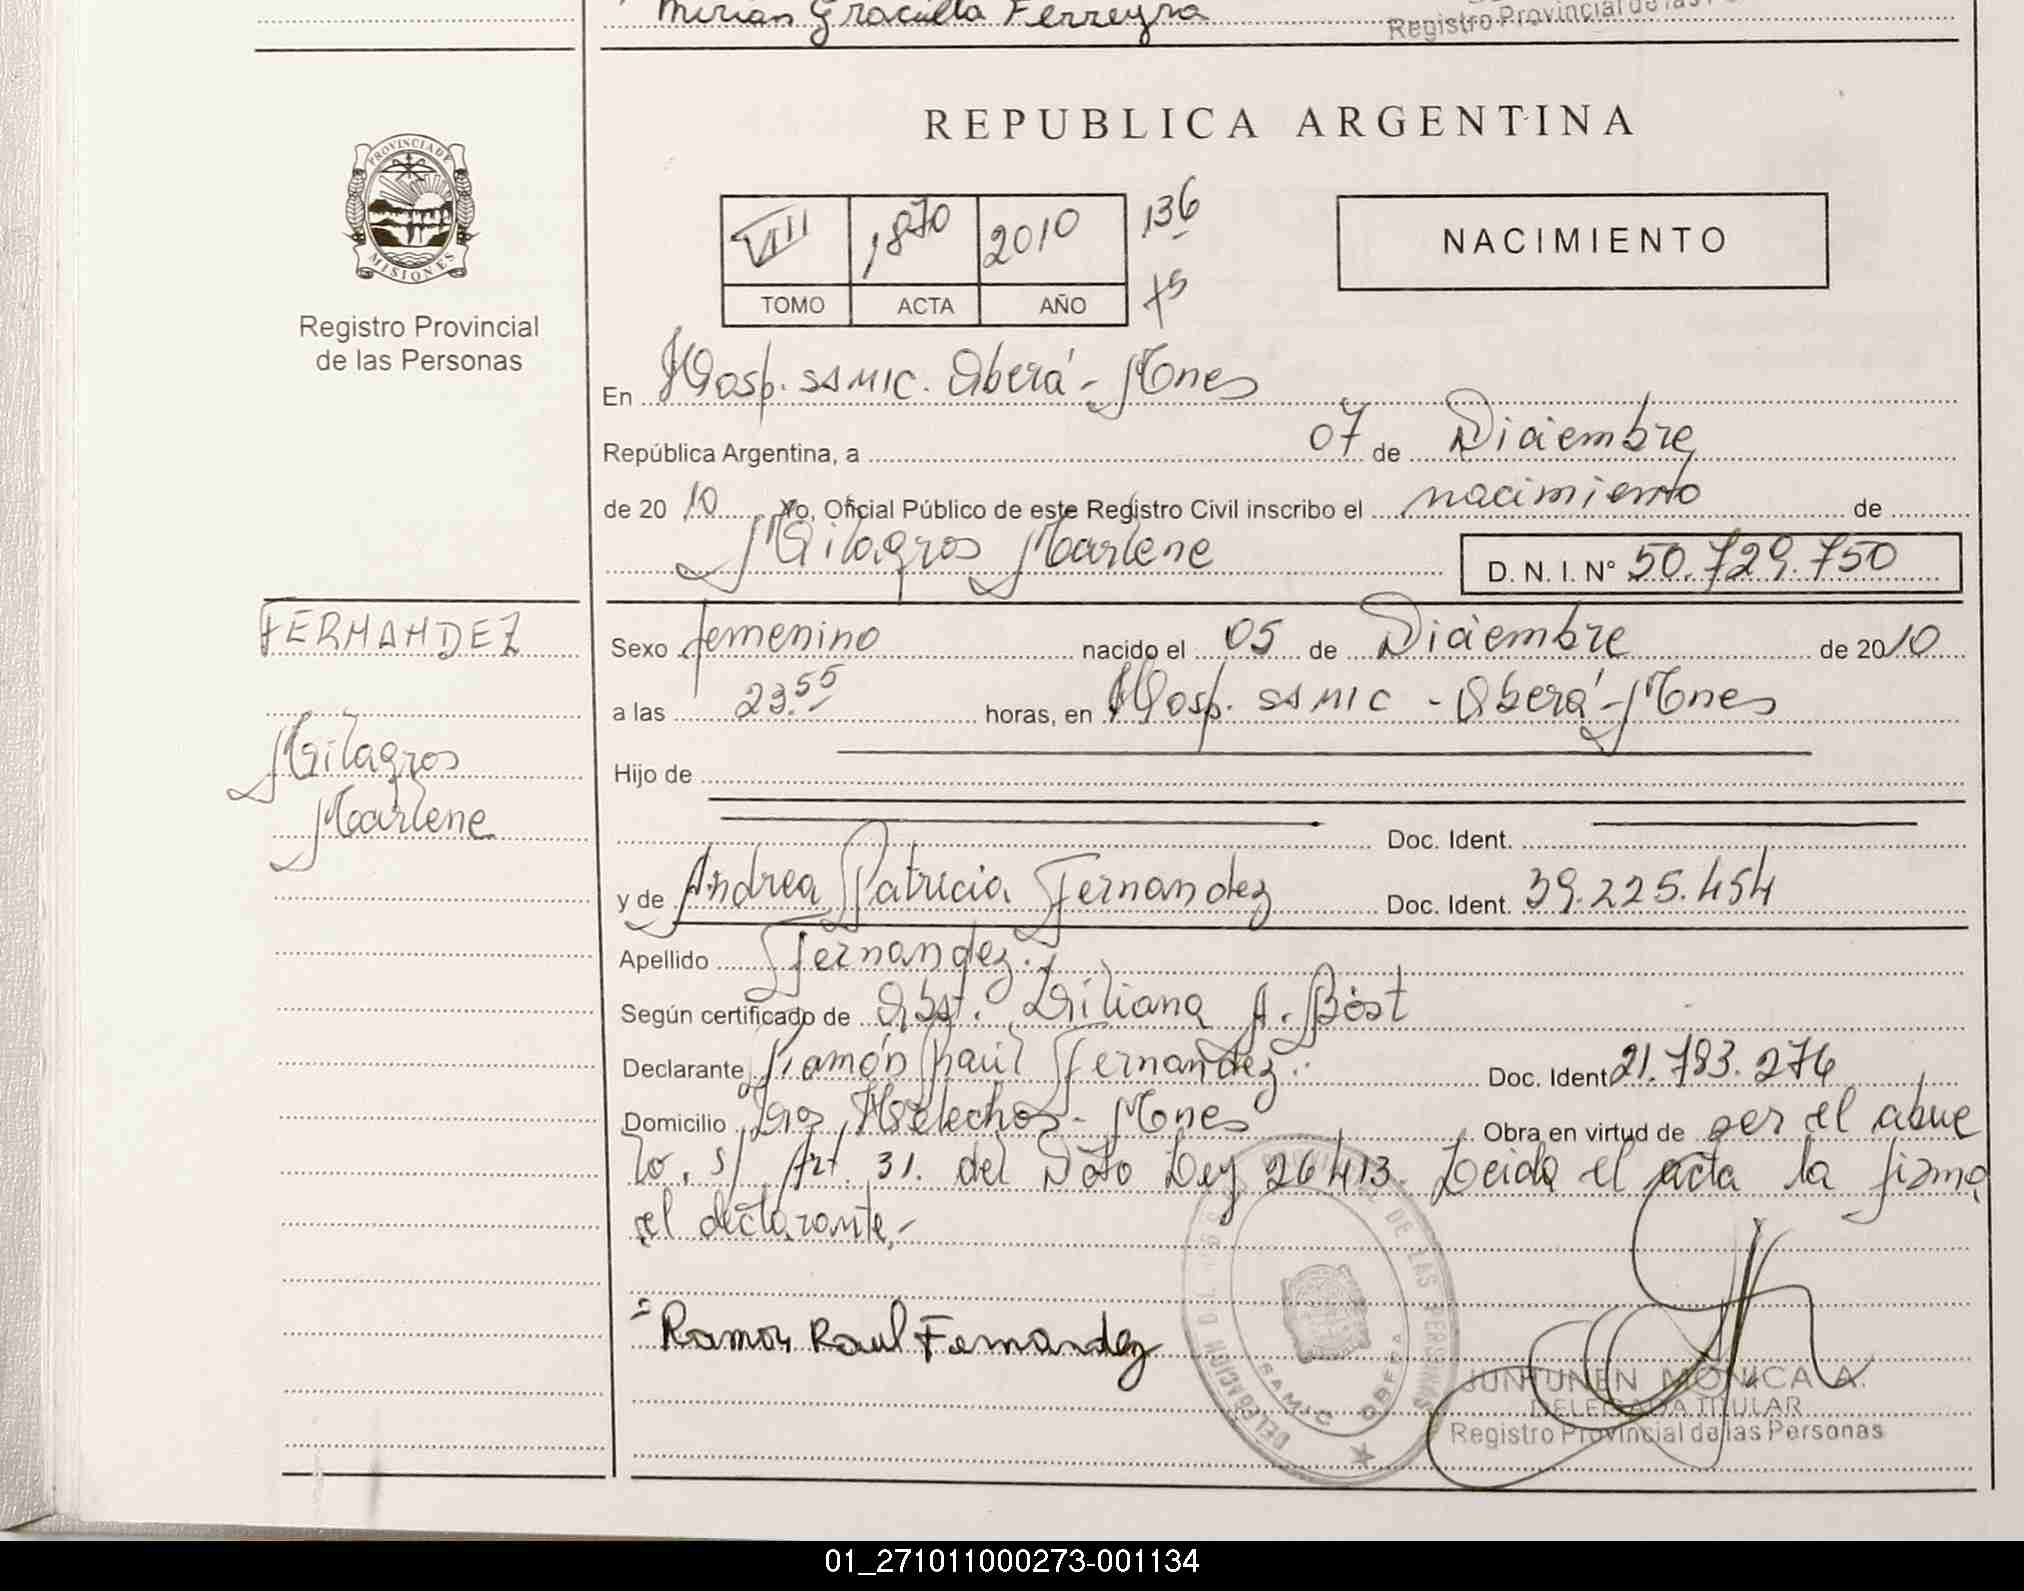 Mirian Graciela Ferreyra
Registro Provincial de las
REPUBLICA ARGENTINA
PROVINCIA DE
MISIONES
Registro Provincial
de las Personas
VIII 1870 2010 136
TOMO ACTA AÑO 75
NACIMIENTO
En Hosp. SAMIC. Oberá - Mnes
República Argentina, a 07 de Diciembre
de 20 10 Yo, Oficial Público de este Registro Civil inscribo el nacimiento de
Milagros Marlene D. N. I. N° 50.729.750
FERNANDEZ
Milagros
Marlene
Sexo femenino nacido el 05 de Diciembre de 2010
a las 23.55 horas, en Hosp. SAMIC - Oberá - Mnes
Hijo de
Doc. Ident.
y de Andrea Patricia Fernandez Doc. Ident. 39.225.454
Apellido Fernandez.
Según certificado de Obst. Liliana A. Bóst
Declarante Ramón Raúl Fernandez. Doc. Ident 21.783.276
Domicilio Los Helechos - Mnes Obra en virtud de ser el abue
lo, s/ Art. 31. del Dto Ley 26413. Leida el acta la firma
el declarante,-
Ramon Raul Fernandez
DE LAS PERSONAS
DELEGACION
SAMIC OBERA
JUNTUNEN MONICA A.
DELEGADA TITULAR
Registro Provincial de las Personas
01_271011000273-001134